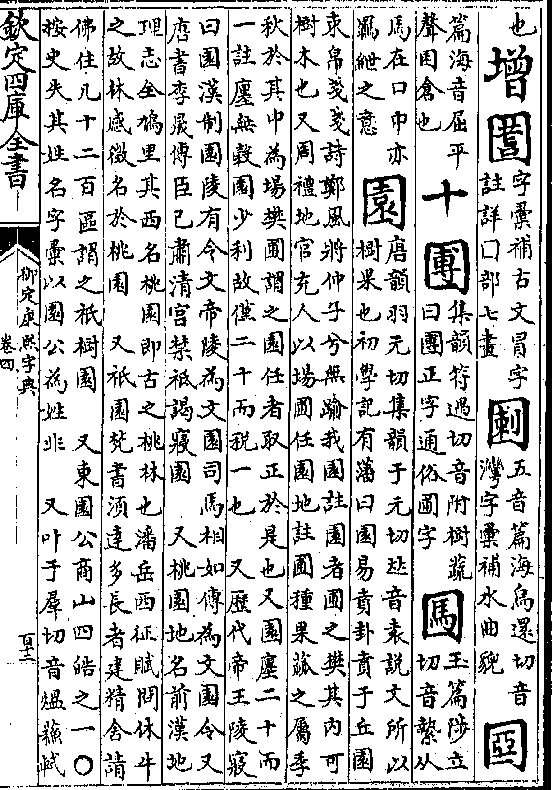 也
增
字彙補古文冒字
註詳冂部七畫
五音篇海烏還切音
灣字彙補水曲貌
篇海音屈平
聲囷倉也
十
集韻符遇切音附樹蔬
曰團正字通俗圃字
玉篇陟立
切音縶从
馬在口中亦
羈紲之意
園
唐韻羽元切集韻于元切𠀤音袁說文所以
樹果也初學記有藩曰園易賁卦賁于丘園
束帛戔戔詩鄭風將仲子兮無踰我園註園者圃之樊其內可
樹木也又周禮地官充人以場圃任園地註圃種果蓏之屬季
秋於其中為場樊圃謂之園任者取正於是也又園廛二十而
一註廛無穀園少利故僅二十而稅一也 又歷代帝王陵寢
曰園漢制園陵有令文帝陵為文園司馬相如傳為文園令又
唐書李晟傳臣已肅清宮禁祗謁寢園 又桃園地名前漢地
理志全鳩里其西名桃園即古之桃林也潘岳西征賦問休牛
之故林感徵名於桃園 又祇園梵書須達多長者建精舍請
佛住凡十二百區謂之祇樹園 又東園公商山四皓之一〇
按史失其姓名字彙以園公為姓非 又叶于羣切音熅蘇軾
欽定四庫全書
御定康熙字典
卷四